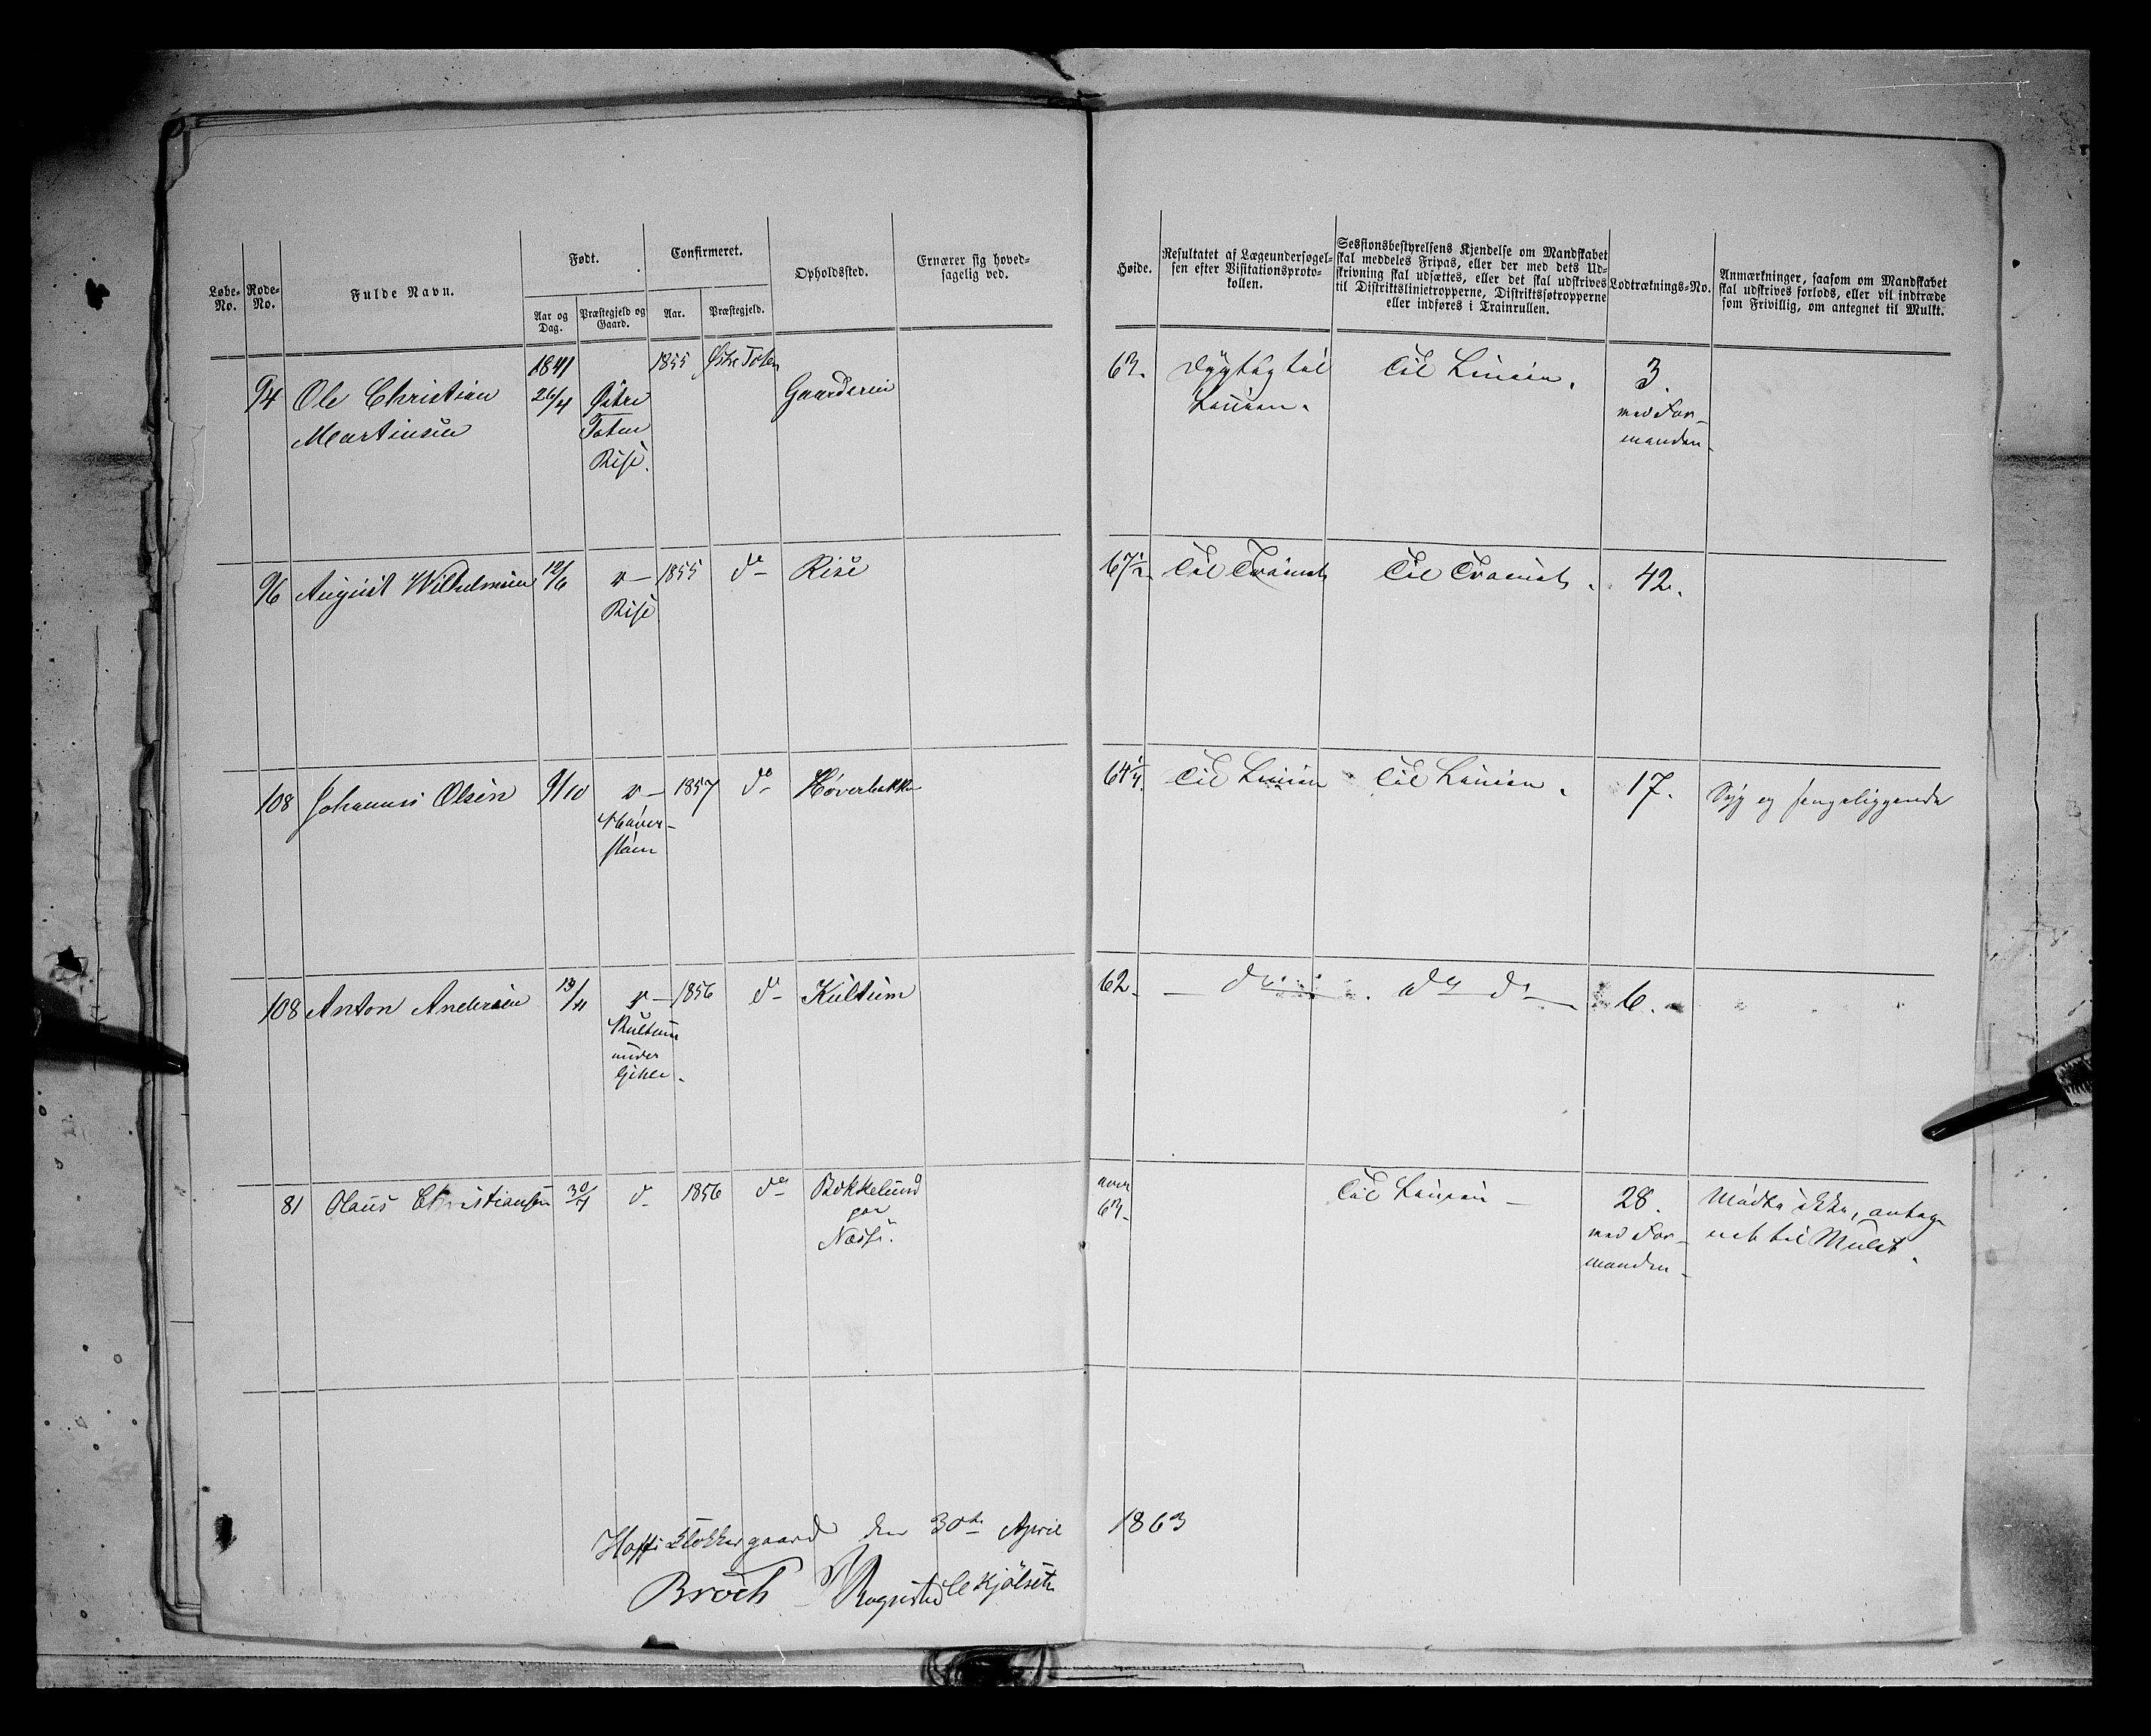 Løbe-No.
Rode-No.
Fulde Navn.
Født.
Aar og Dag.
Præstegjeld og Gaard.
Confirmeret.
Aar.
Præstegjeld.
Opholdssted.
Ernærer sig hoved-
sagelig ved.
Høide.
Resultatet af Lægeundersøgel-
sen efter Visitationsproto-
kollen.
Sessionsbestyrelsens Kjendelse om Mandskabet
skal meddeles Fripas, eller der med dets Ud-
skrivning skal udsættes, eller det skal udskrives
til Distriktslinietropperne, Distriktsføtropperne
eller indføres i Trainrullen.
Lodtræknings-No.
Anmærkninger, saasom om Mandskabet
skal udskrives forlods, eller vil indtræde
som Frivillig, om antegnet til Mulkt.
1841 1855 Østre Toten
94 Ole Christian 26/4 Østre Gaarderne 63. Dygtig til Til Linien. 3.
Martinsen Toten Linien. med For-
Rise. manden.
96 August Wilhelmsen 12/6 v— 1855 do Rise 67½ Til Trainet Til Trainet. 42.
Rise
108 Johannes Olsen 9/10 v— 1857 do Høverbakken 64¼ Til Linien Til Linien. 17. Syg og sengeliggende
108 Anton Andersen 13/11 v— 1856 do Kultum 62. — do — do do — 6.
Kultum
under
81 Olaus Christiansen 1856 do Bokkelund over 63. Til Linien — 28. Mødte ikke, anteg-
paa med For- net til Mulct.
Næss. manden.
Hoffs Klokkergaard den 30te April 1863
Broch